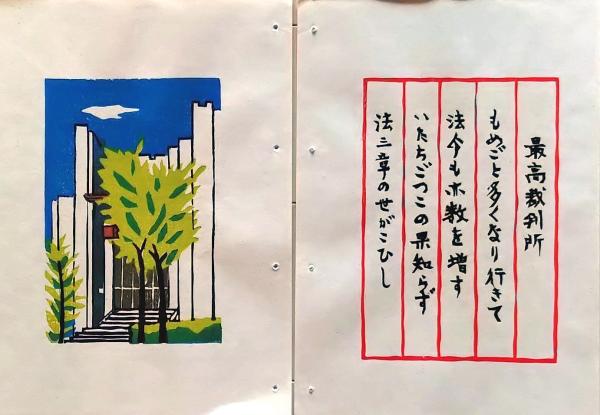 最高裁判所
もめごと多くなり行きて
法令も亦数を増す
いたちごつこの果知らず
法三章の世がこひし